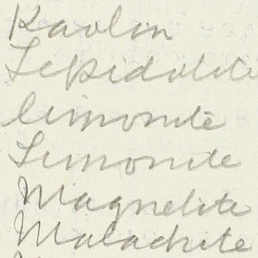 Kaolin
Lepidolite
limonite
Limonite
Magnetite
Malachite